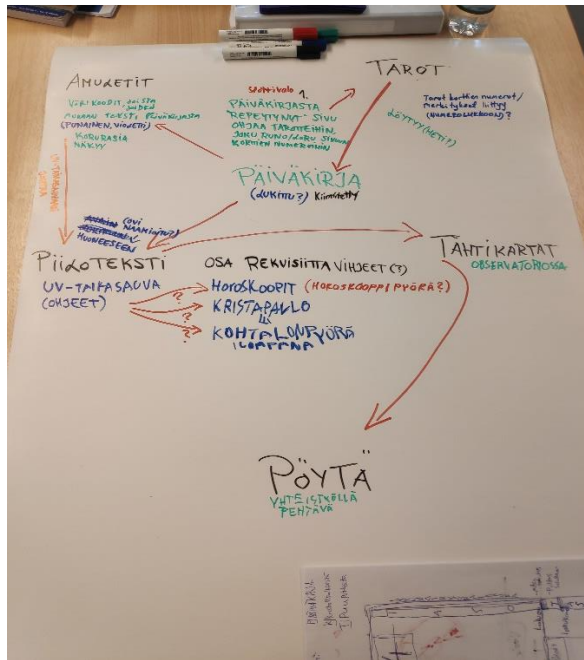 AMULETIT
VÄRI KOODIT, JOISTA
MUKAAN TEKSTI PÄIVÄKIRJASTA
(PUNAINEN, VIOLETTI)
KORURASIA
NÄKYY
SPOTTIVALO ?
PÄIVÄKIRJASTA
"REPEYTYNYT" SIVU
OHJAA TAROTEIHIN.
JOKU RUNO/LORU SIVUUN
KORTTIEN NUMEROIHIN
TAROT
Tarot korttien numerot/
merkitykset liittyy
(NUMEROLUKKOON)?
LÖYTYY (HETI?)
PÄIVÄKIRJA
(LUKITTU?) Kiinnitetty
(OVI
NAAMIOITU?)
HUONEESEEN
PIILOTEKSTI
UV-TAIKASAUVA
(OHJEET)
OSA REKVISIITTA VIHJEET (?)
? HOROSKOOPIT (HOROSKOOPPI PYÖRÄ?)
? KRISTAPALLO
? KOHTALONPYÖRÄ
ILMAPANA
TÄHTIKARTAT
OBSERVATORIOSSA
PÖYTÄ
YHTEISTYÖLLÄ
PEHTÄVÄ